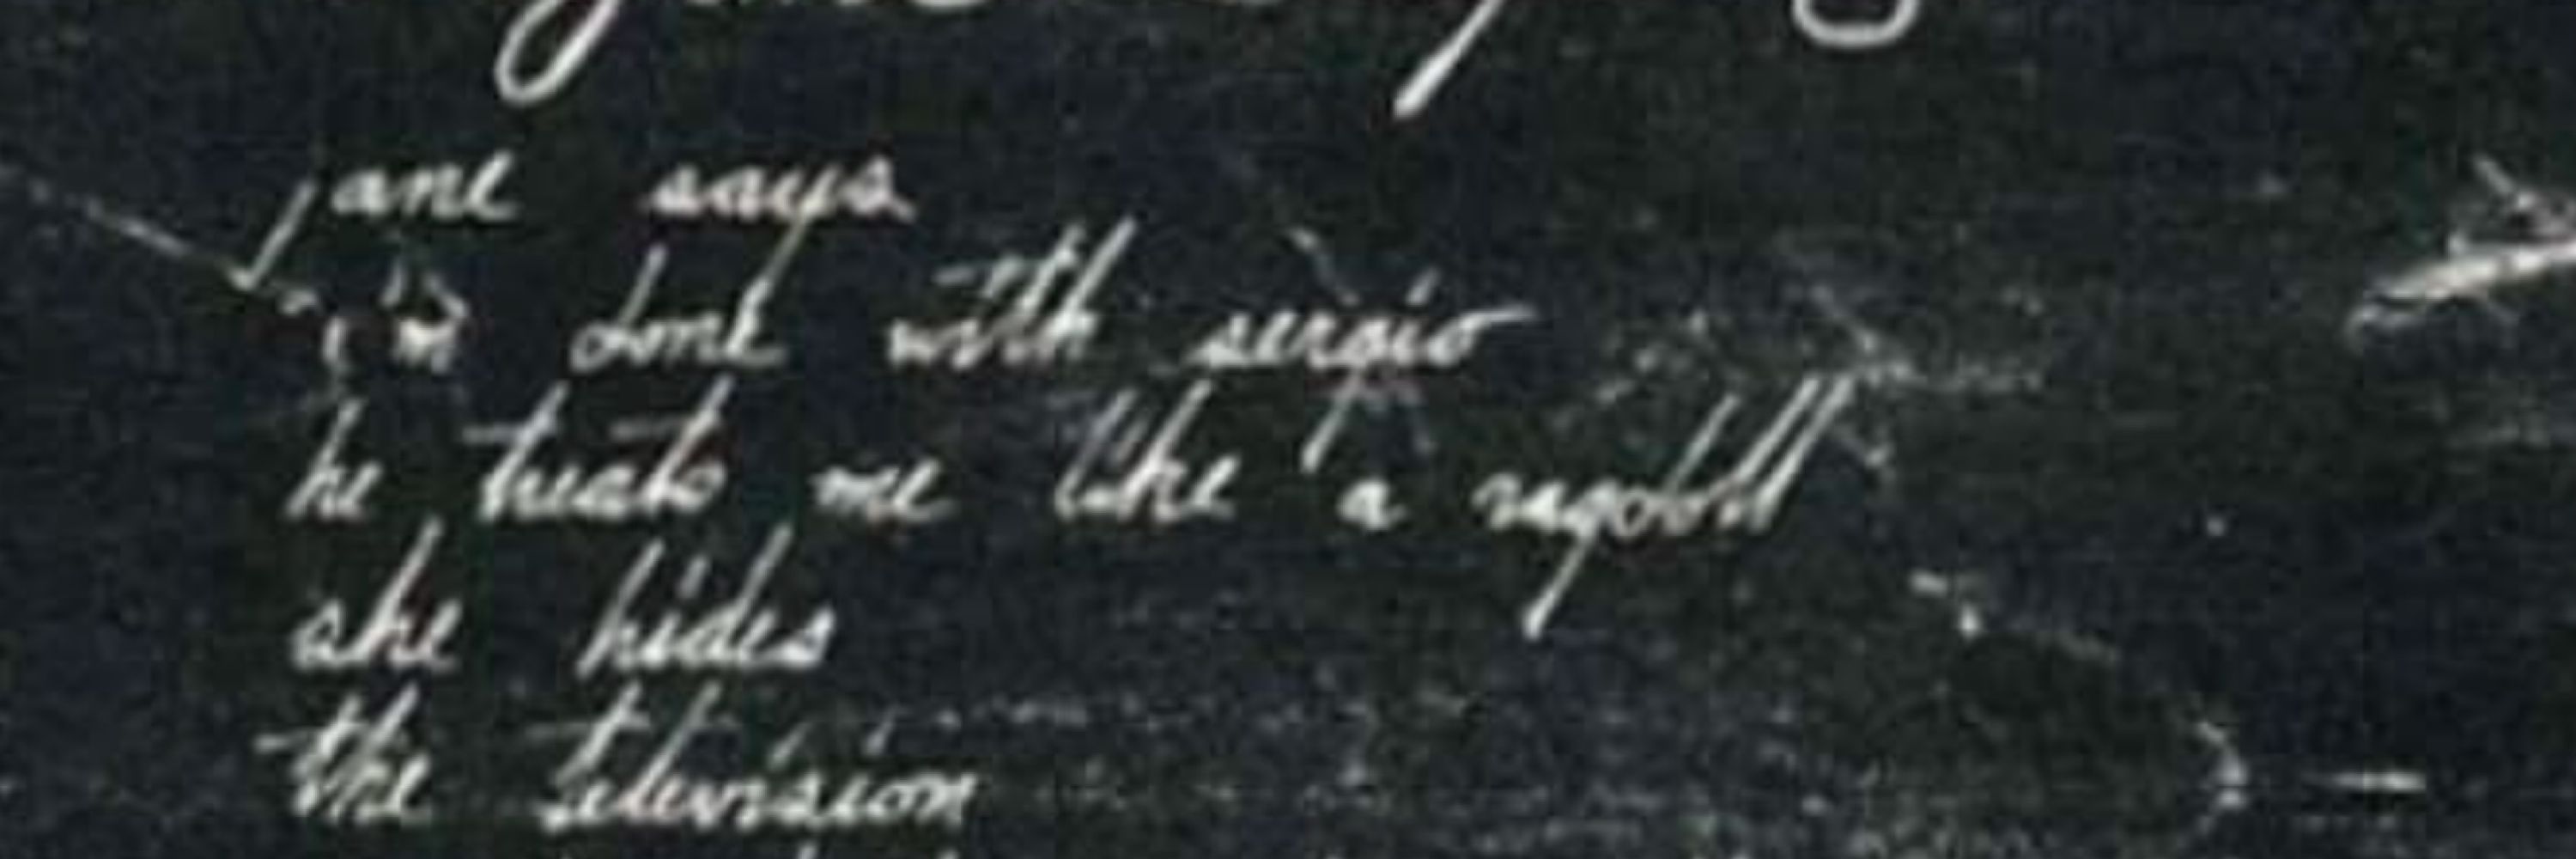 Jane says
i'm done with sergio
he treats me like a ragdoll
she hides
the television